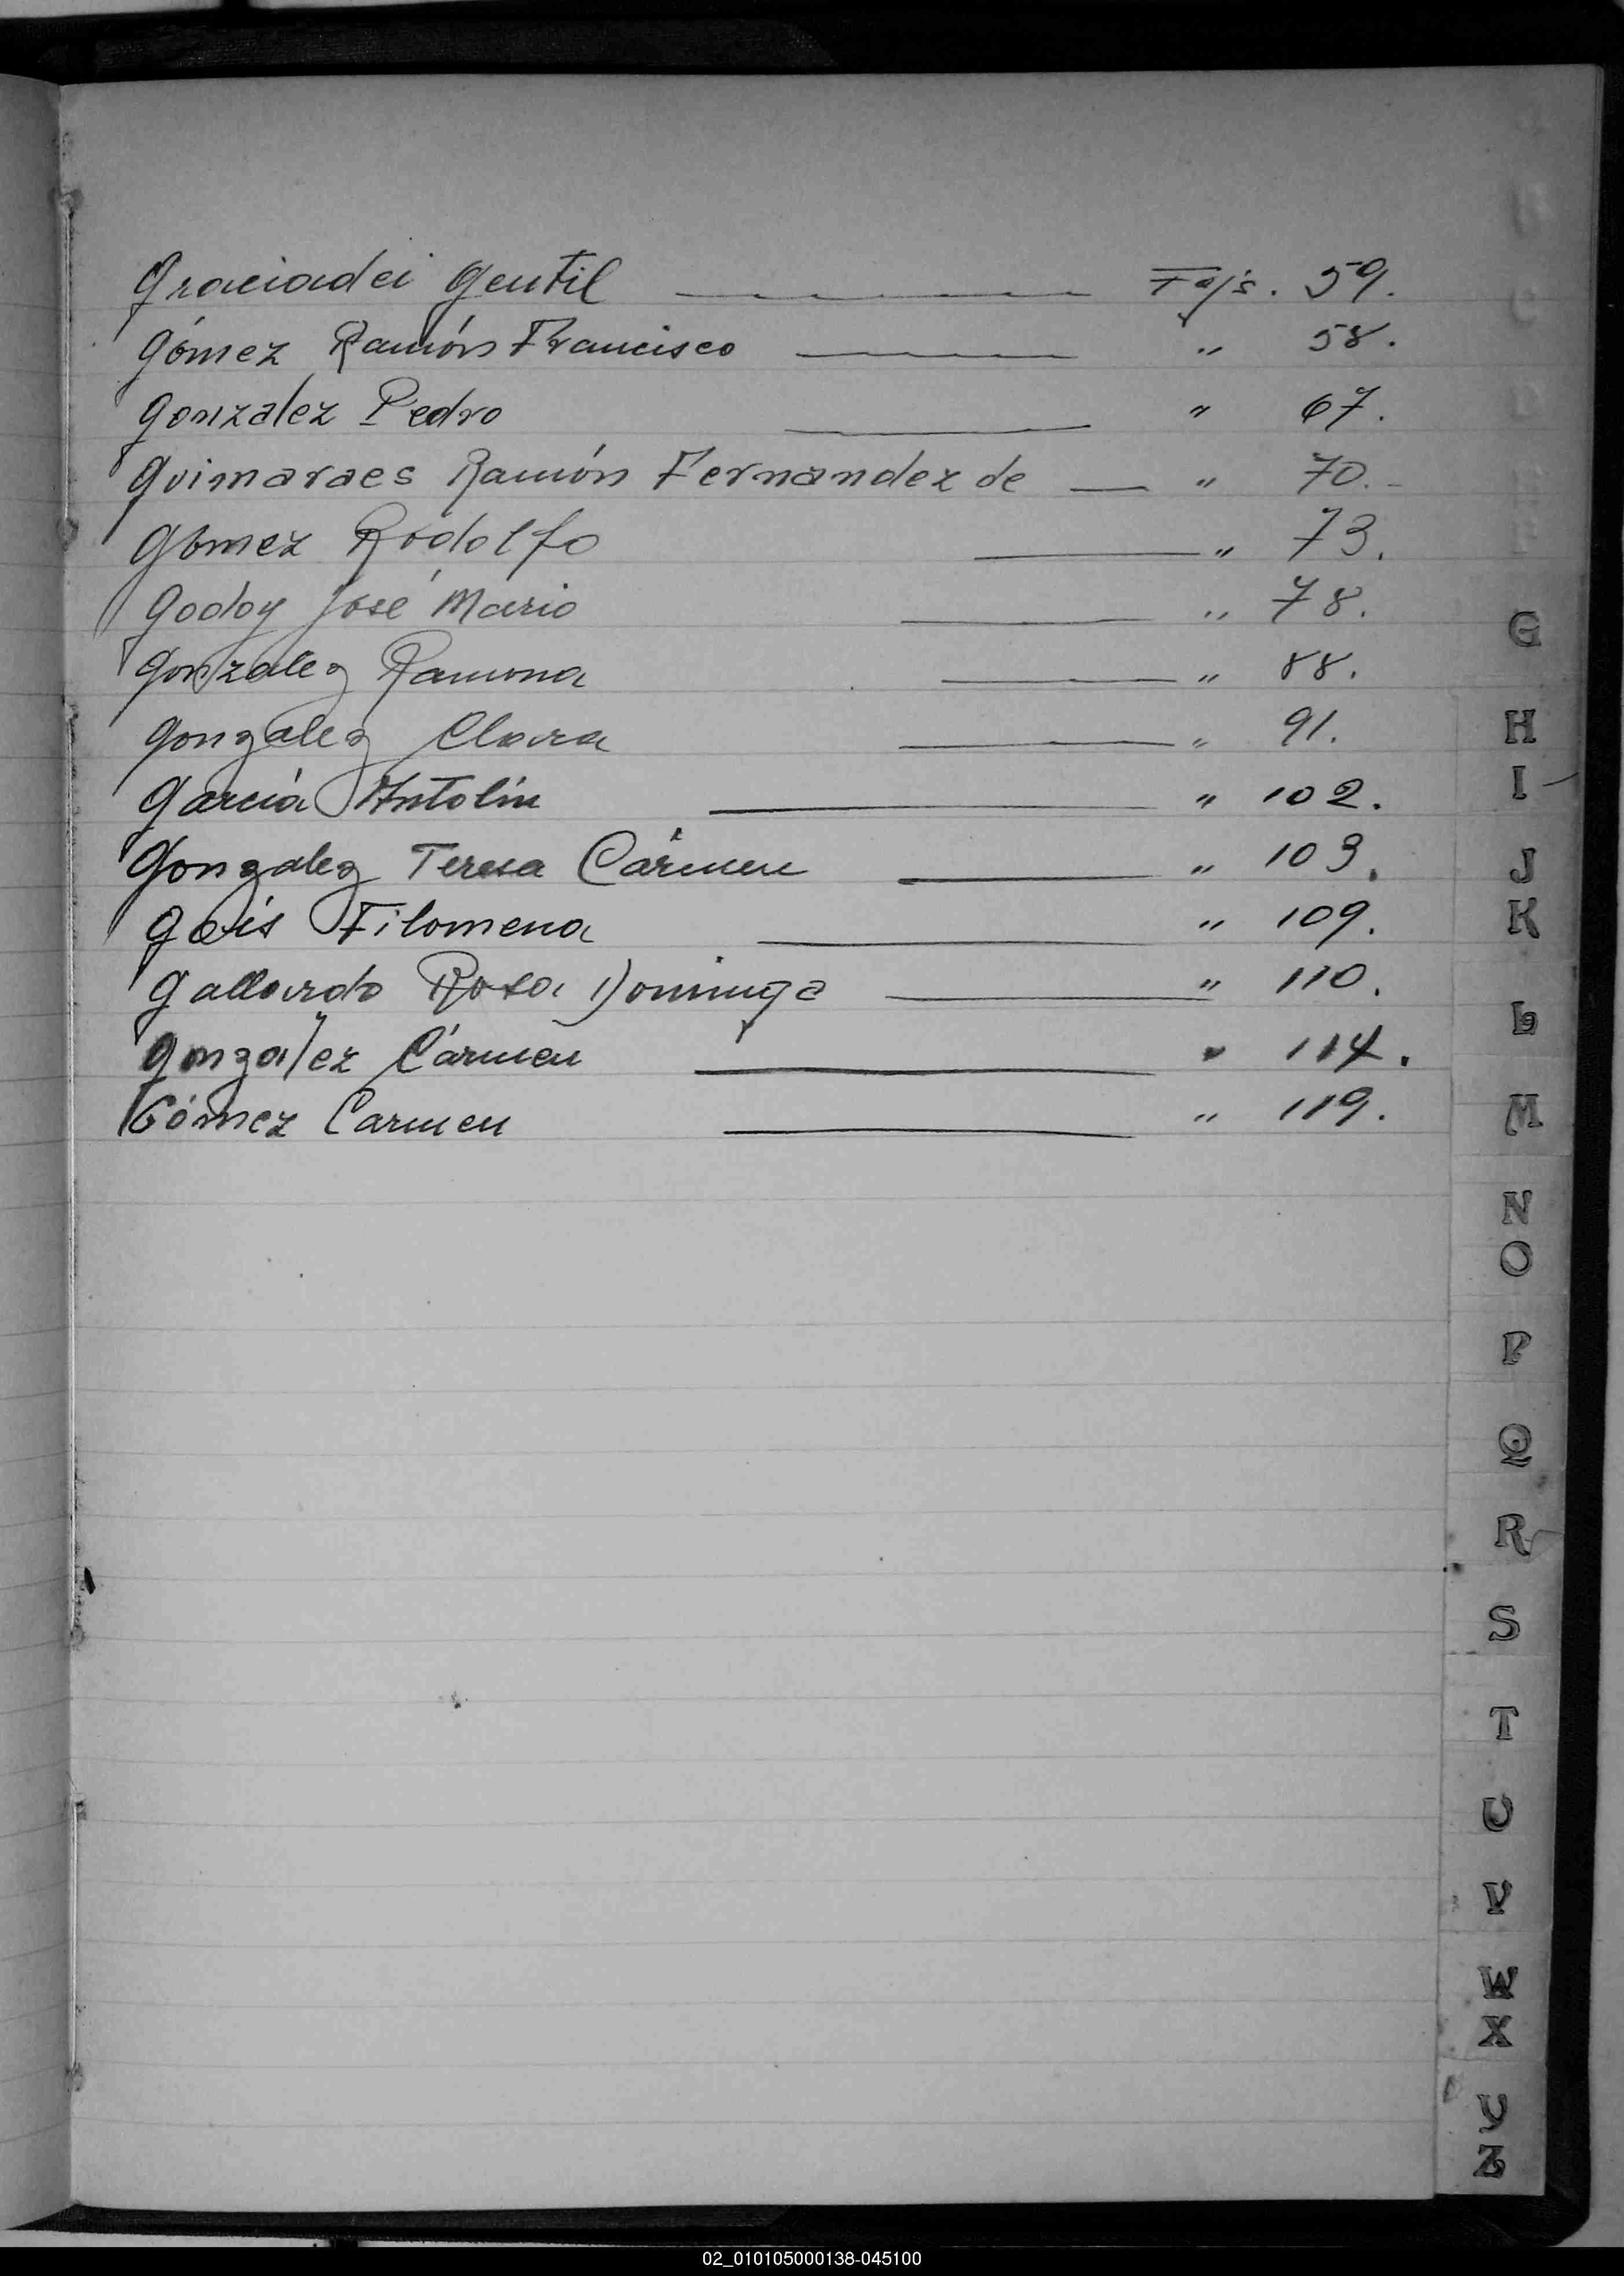 Graciadei Gentil Fojs. 59.
Gómez Ramón Francisco " 58.
Gonzalez Pedro " 67.
Guimaraes Ramón Fernandez de " 70.-
Gómez Rodolfo " 73.
Godoy José Mario " 78.
Gonzalez Ramona " 88.
Gonzalez Clara " 91.
García Antolín " 102.
Gonzalez Teresa Cármen " 103.
Filomena " 109.
Gallardo Rosa Dominga " 110.
Gonzalez Cármen " 114.
Gómez Carmen " 119.
G
H
I
J
K
L
M
N
O
P
Q
R
S
T
U
V
W
X
Y
Z
02_010105000138-045100